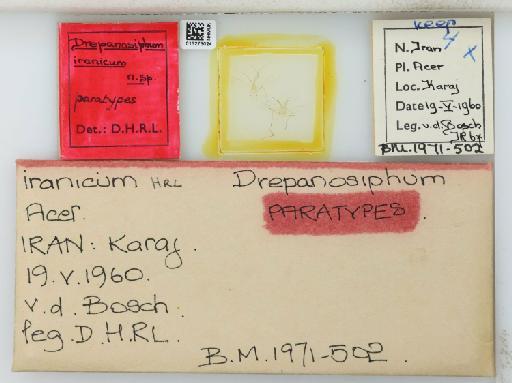 Drepanosiphum
iranicum
n.sp.
paratypes
Det.: D.H.R.L.
keep
N. Iran
Pl. Acer
Loc. Karaj
Date 19-V-1960
Leg. v.d Bosch
B.M. 1971-502
iranicum HRL Drepanosiphum
Acer. PARATYPES.
IRAN: Karaj.
19.V.1960.
v.d. Bosch.
leg. D.H.RL.
B.M. 1971-502.